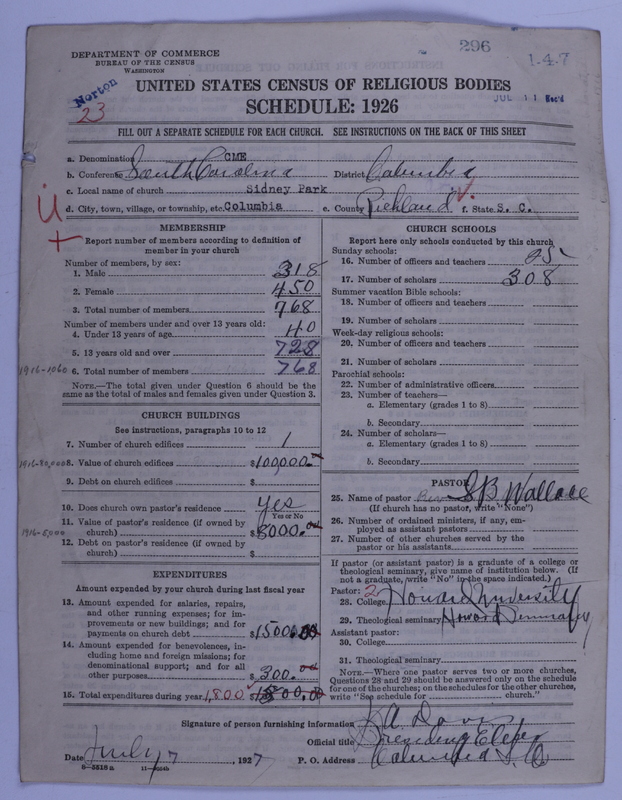 296
1.4.7
DEPARTMENT OF COMMERCE
BUREAU OF THE CENSUS
WASHINGTON
Norton
23
UNITED STATES CENSUS OF RELIGIOUS BODIES
JUL 11 Rec'd
SCHEDULE: 1926
FILL OUT A SEPARATE SCHEDULE FOR EACH CHURCH. SEE INSTRUCTIONS ON THE BACK OF THIS SHEET
a. Denomination CME
b. Conference South Carolina District Columbia
c. Local name of church Sidney Park
d. City, town, village, or township, etc. Columbia e. County Richland f. State S. C.
MEMBERSHIP
Report number of members according to definition of
member in your church
Number of members, by sex:
1. Male 318
2. Female 450
3. Total number of members 768
Number of members under and over 13 years old:
4. Under 13 years of age 40
5. 13 years old and over 728
1916-1060 6. Total number of members 768
NOTE.—The total given under Question 6 should be the
same as the total of males and females given under Question 3.
CHURCH BUILDINGS
See instructions, paragraphs 10 to 12
7. Number of church edifices 1
8. Value of church edifices $100,000.
9. Debt on church edifices $
10. Does church own pastor's residence yes
Yes or No
11. Value of pastor's residence (if owned by
1916-5,000 church) $8000.00
12. Debt on pastor's residence (if owned by
church) $
EXPENDITURES
Amount expended by your church during last fiscal year
13. Amount expended for salaries, repairs,
and other running expenses; for im-
provements or new buildings; and for
payments on church debt $1500.00
14. Amount expended for benevolences, in-
cluding home and foreign missions; for
denominational support; and for all
other purposes $300.00
15. Total expenditures during year 1,800
CHURCH SCHOOLS
Report here only schools conducted by this church
Sunday schools:
16. Number of officers and teachers 25
17. Number of scholars 308
Summer vacation Bible schools:
18. Number of officers and teachers
19. Number of scholars
Week-day religious schools:
20. Number of officers and teachers
21. Number of scholars
Parochial schools:
22. Number of administrative officers
23. Number of teachers—
a. Elementary (grades 1 to 8)
b. Secondary
24. Number of scholars—
a. Elementary (grades 1 to 8)
b. Secondary
PASTOR
25. Name of pastor Rev S B Wallace
(If church has no pastor, write "None")
26. Number of ordained ministers, if any, em-
ployed as assistant pastors
27. Number of other churches served by the
pastor or his assistants
If pastor (or assistant pastor) is a graduate of a college or
theological seminary, give name of institution below. (If
not a graduate, write "No" in the space indicated.)
Pastor: 2
28. College Howard University
29. Theological seminary Howard Seminary
Assistant pastor:
30. College
31. Theological seminary
NOTE.—Where one pastor serves two or more churches,
Questions 28 and 29 should be answered only on the schedule
for one of the churches; on the schedules for the other churches,
write "See schedule for church."
Signature of person furnishing information
Official title Presiding Elder
Date July 7, 1927 P. O. Address Columbia S. C.
8-5518 a